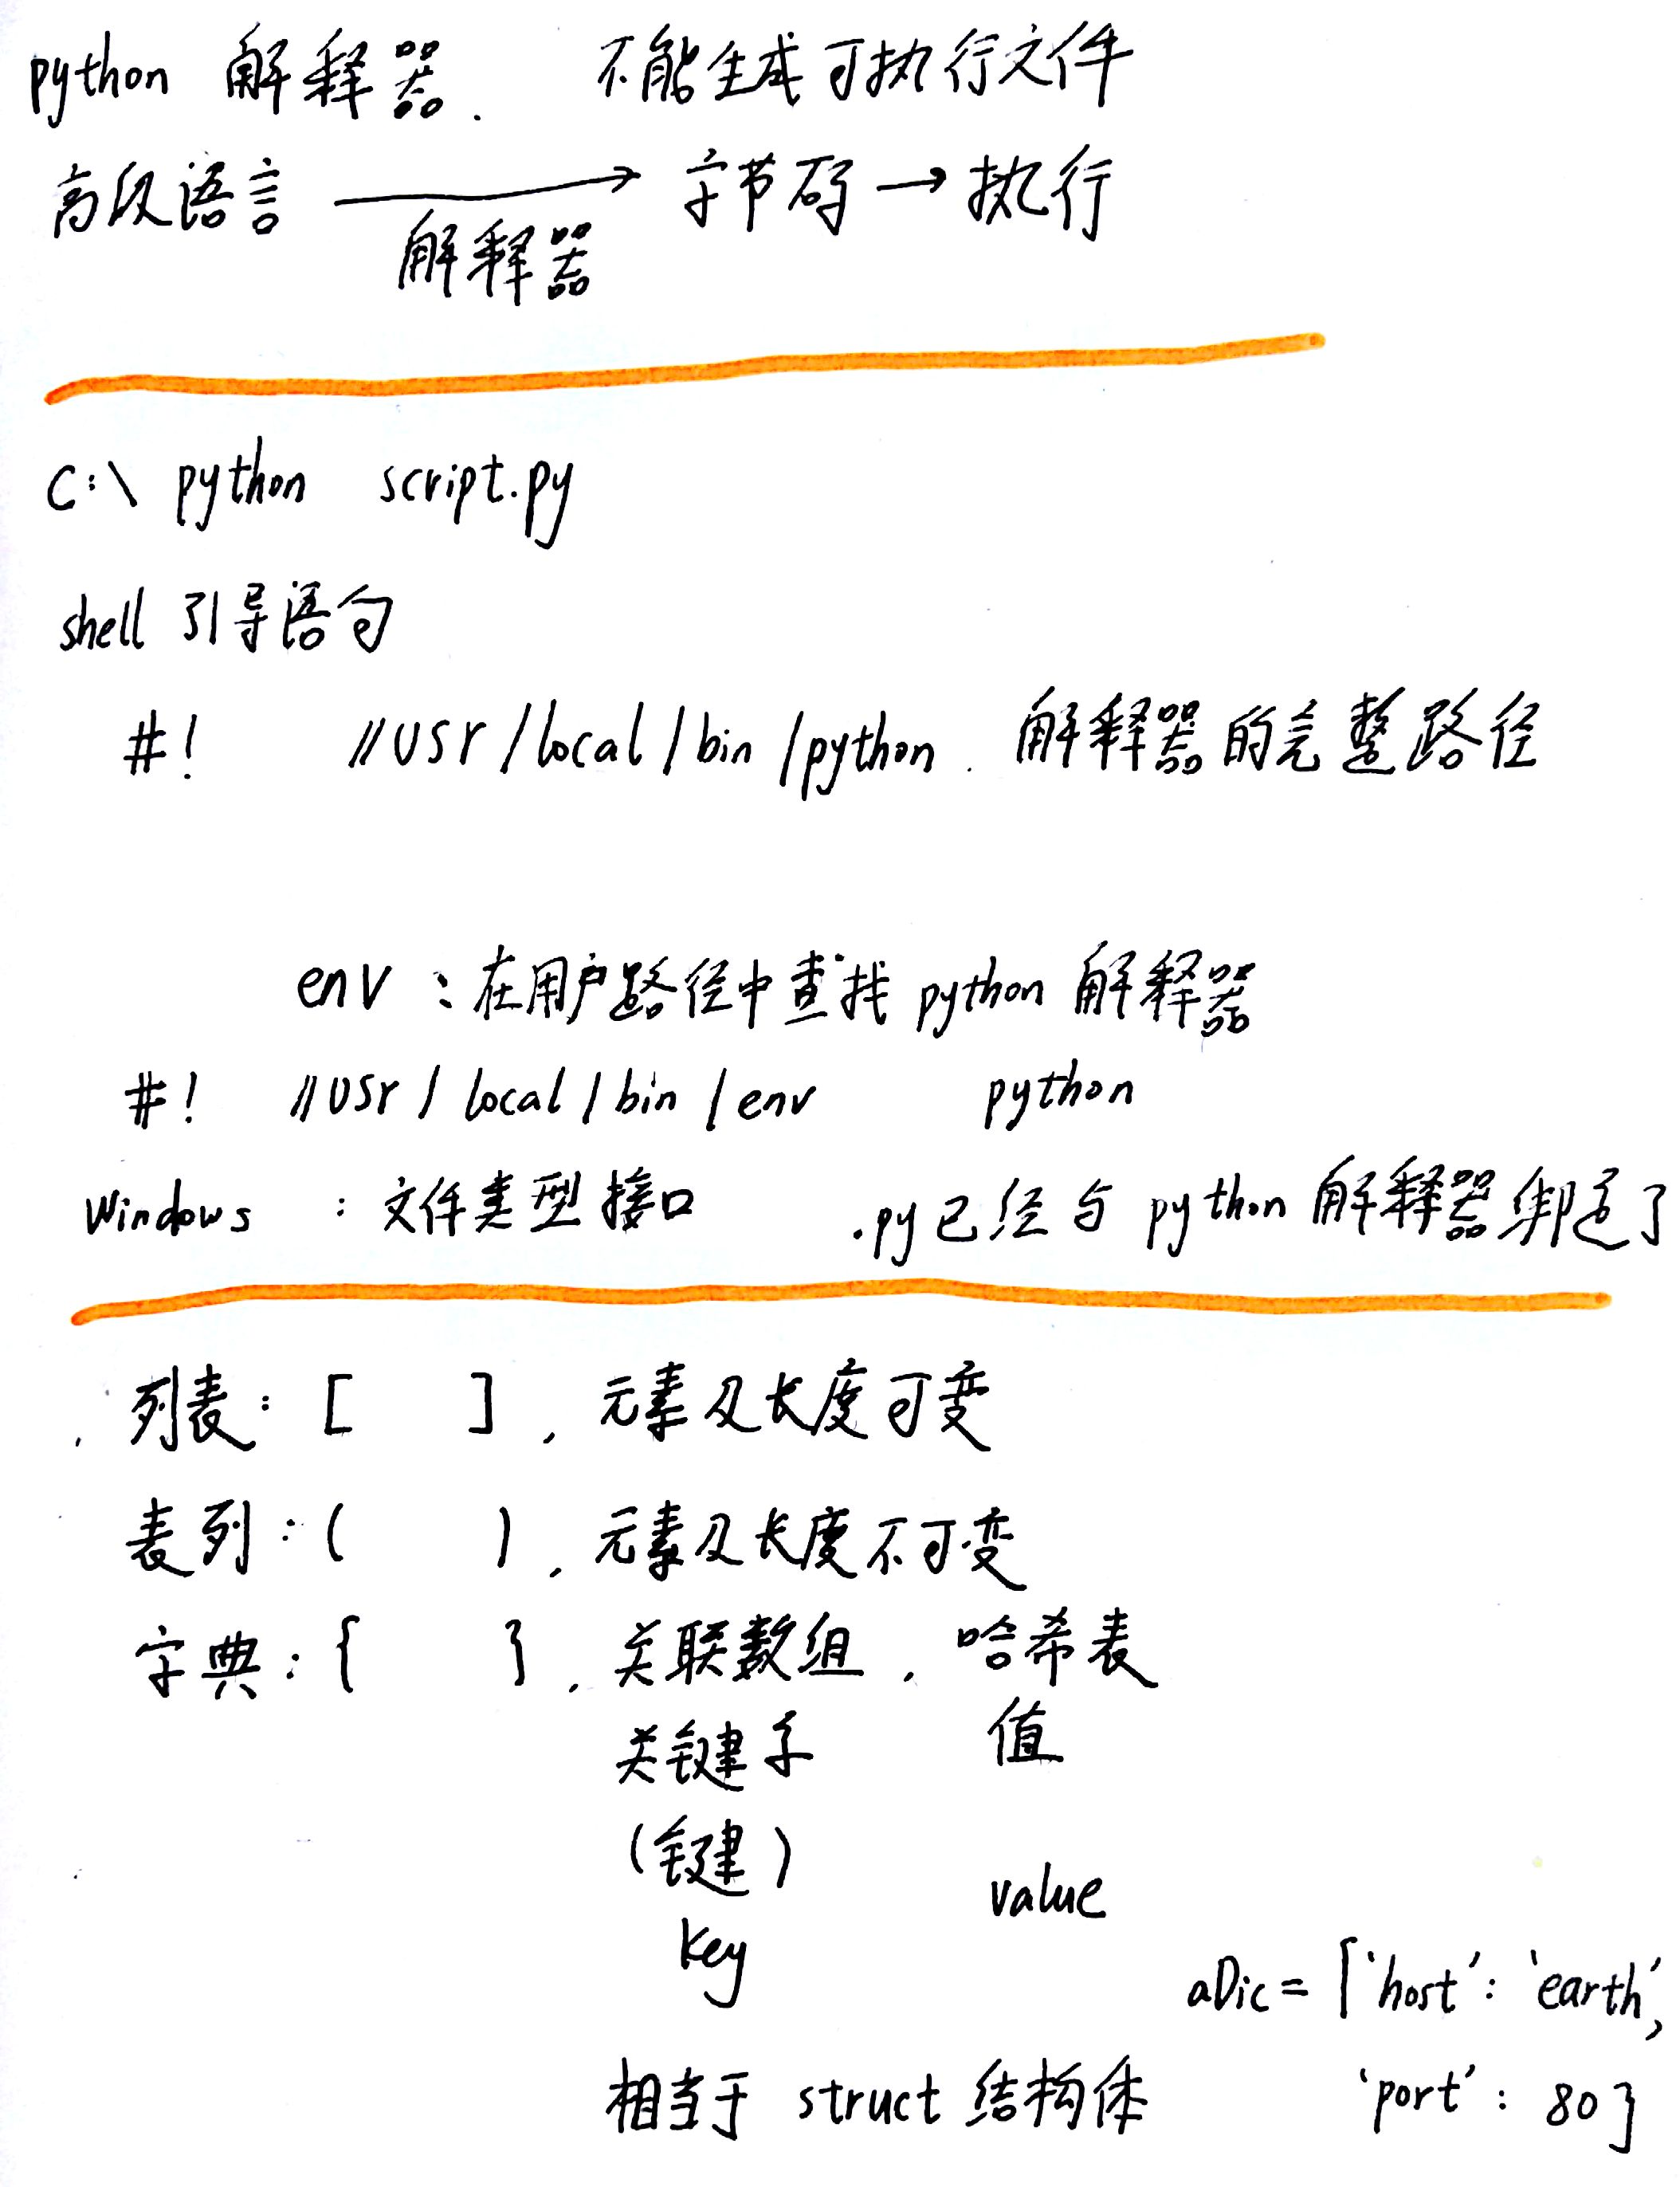 python 解释器. 不能生成可执行文件
高级语言 → 字节码 → 执行
解释器
C:\ python script.py
shell 引导语句
#! //usr/local/bin/python. 解释器的完整路径
env : 在用户路径中查找 python 解释器
#! //usr/local/bin/env python
Windows : 文件类型接口 .py已经与 python 解释器绑定了
列表: [ ], 元素及长度可变
表列: ( ), 元素及长度不可变
字典: { }, 关联数组, 哈希表
关键字 值
(键)
value
key
aDic = {'host': 'earth',
相当于 struct 结构体 'port': 80}